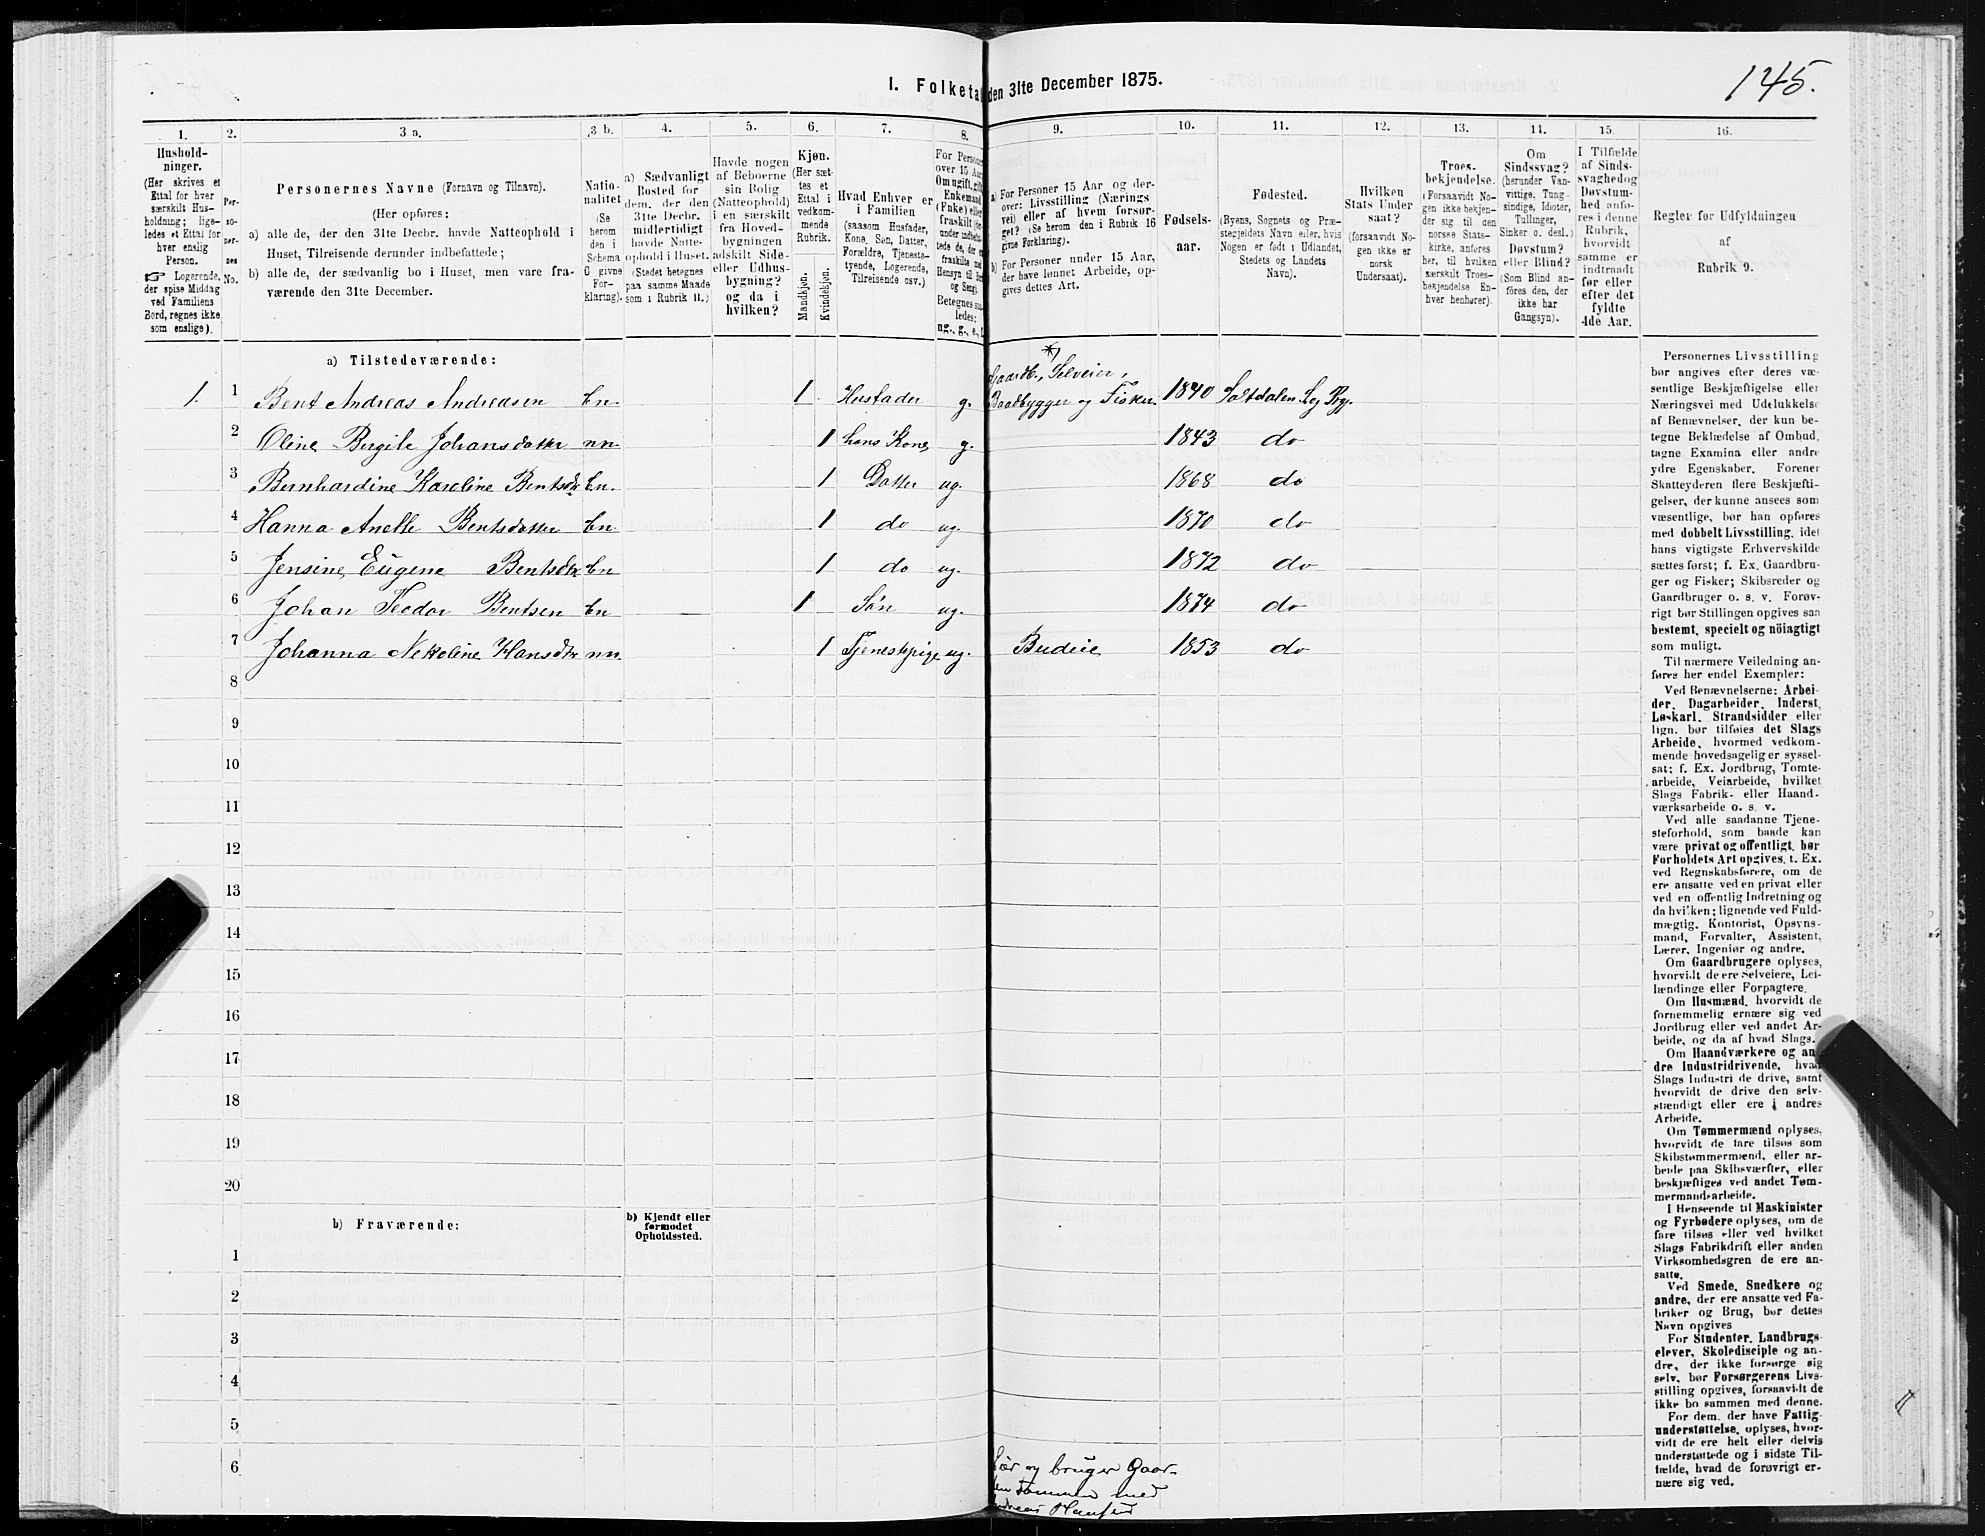 145.
1. Folketal den 31te December 1875.
1. 2. 3 a. 3 b. 4. 5. 6. 7. 8. 9. 10. 11. 12. 13. 14. 15. 16.
Hushold-
ninger.
(Her skrives et
Ettal for hver
særskilt Hus-
holdning; lige-
ledes et Ettal for
hver enslig
Person.
☞ Logerende,
der spise Middag
ved Familiens
Bord, regnes ikke
som enslige).
Per-
so-
ner-
nes
No.
Personernes Navne (Fornavn og Tilnavn).
(Her opføres:
a) alle de, der den 31te Decbr. havde Natteophold i
Huset, Tilreisende derunder indbefattede;
b) alle de, der sædvanlig bo i Huset, men vare fra-
værende den 31te December.
Natio-
nalitet
(Se
herom
den i
Schema
C givne
For-
klaring).
a) Sædvanligt
Bosted for
dem, der den
31te Decbr.
midlertidigt
havde Natte-
ophold i Huset.
(Stedet betegnes
paa samme Maade
som i Rubrik 11.)
Havde nogen
af Beboerne
sin Bolig
(Natteophold)
i en særskilt
fra Hoved-
bygningen
adskilt Side-
eller Udhus-
bygning?
og da i
hvilken?
Kjøn.
(Her sæt-
tes et
Ettal i
vedkom-
mende
Rubrik.
Mandkjøn.
Kvindekjøn.
Hvad Enhver er
i Familien
(saasom Husfader,
Kone, Søn, Datter,
Forældre, Tjeneste-
tyende, Logerende,
Tilreisende osv.)
For Personer
over 15 Aar:
Om ugift, gift,
Enkemand
(Enke) eller
fraskilt
Betegnes saa-
ledes:
ug., g., e.,
a) For Personer 15 Aar og der-
over: Livsstilling (Nærings-
vei) eller af hvem forsør-
get? (Se herom den i Rubrik 16
givne Forklaring).
b) For Personer under 15 Aar,
der have lønnet Arbeide, op-
gives dettes Art.
Fødsels-
aar.
Fødested.
(Byens, Sognets og Præ-
stegjeldets Navn eller, hvis
Nogen er født i Udlandet,
Stedets og Landets
Navn).
Hvilken
Stats Under
saat?
(forsaavidt No-
gen ikke er
norsk
Undersaat).
Troes-
bekjendelse.
(Forsaavidt No-
gen ikke bekjen-
der sig til den
norske Stats-
kirke, anføres
her, til hvilken
særskilt Troes-
bekjendelse En-
hver henhører).
Om
Sindssvag?
(herunder Van-
vittige, Tung-
sindige, Idioter,
Tullinger,
Sinker o. desl.)
Døvstum?
eller Blind?
(Som Blind an-
føres den, der
ikke har
Gangsyn).
I Tilfælde
af Sinds-
svaghed og
Døvstum-
hed anfø-
res i denne
Rubrik,
hvorvidt
samme er
indtraadt
før eller
efter det
fyldte
4de Aar.
Regler for Udfyldningen
af
Rubrik 9.
a) Tilstedeværende:
*)
Gaardb., Selveier,
1. 1 Bent Andreas Andreasen bn. 1 Husfader g. Baadbygger og Fisker. 1840 Saltdalen Sog Prgj.
2 Oline Birgite Johansdatter nn 1 hans Kone g. 1843 do
3 Bernhardine Karoline Bentsdtr bn. 1 Datter ug. 1868 do
4 Hanna Anette Bentsdatter bn. 1 do ug. 1870 do
5 Jensine Eugene Bentsdtr bn 1 do ug. 1872 do
6 Johan Teodor Bentsen bn 1 Søn ug. 1874 do
7 Johanna Nekoline Hansdtr nn. 1 Tjenestepige ug. Budeie 1853 do
8
9
10
11
12
13
14
15
16
17
18
19
20
b) Fraværende:
b) Kjendt eller
formodet
Opholdssted.
1
2
3
4
5
6
Eier og bruger Gaar-
den sammen med
Andreas Hansen
Personernes Livsstilling
bør angives efter deres væ-
sentlige Beskjæftigelse eller
Næringsvei med Udelukkelse
af Benævnelser, der kun be-
tegne Beklædelse af Ombud,
tagne Examina eller andre
ydre Egenskaber. Forener
Skatteyderen flere Beskjæfti-
gelser, der kunne ansees som
væsentlige, bør han opføres
med dobbelt Livsstilling, idet
hans vigtigste Erhvervskilde
sættes først; f. Ex. Gaardbru-
ger og Fisker; Skibsreder og
Gaardbruger o. s. v. Forøv-
rigt bør Stillingen opgives saa
bestemt, specielt og nöiagtigt
som muligt.
Til nærmere Veiledning an-
føres her endel Exempler:
Ved Benævnelserne: Arbei-
der, Dagarbeider, Inderst,
Løskarl, Strandsidder eller
lign. bør tilføies det Slags
Arbeide, hvormed vedkom-
mende hovedsagelig er syssel-
sat; f. Ex. Jordbrug, Tomte-
arbeide, Veiarbeide, hvilket
Slags Fabrik- eller Haand-
værksarbeide o. s. v.
Ved alle saadanne Tjene-
steforhold, som baade kan
være privat og offentligt, bør
Forholdets Art opgives, t. Ex.
ved Regnskabsførere, om de
ere ansatte ved en privat eller
ved en offentlig Indretning og
da hvilken; lignende ved Fuld-
mægtig, Kontorist, Opsyns-
mand, Forvalter, Assistent,
Lærer, Ingeniør og andre.
Om Gaardbrugere oplyses,
hvorvidt de ere Selveiere, Lei-
lændinge eller Forpagtere.
Om Husmænd, hvorvidt de
fornemmelig ernære sig ved
Jordbrug eller ved andet Ar-
beide, og da af hvad Slags.
Om Haandværkere og an-
dre Industridrivende, hvad
Slags Industri de drive, samt
hvorvidt de drive den selv-
stændigt eller ere i andres
Arbeide.
Om Tømmermænd oplyses,
hvorvidt de fare tilsøs som
Skibstømmermænd, eller ar-
beide paa Skibsværfter, eller
beskjæftiges ved andet Tøm-
mermandsarbeide.
I Henseende til Maskinister
og Fyrbødere oplyses, om de
fare tilsøs eller ved hvilket
Slags Fabrikdrift eller anden
Virksomhedsgren de ere an-
satte.
Ved Smede, Snedkere og
andre, der ere ansatte ved Fa-
briker og Brug, bør dettes
Navn opgives
For Studenter, Landbrugs-
elever, Skoledisciple og an-
dre, der ikke forsørge sig
selv, bør Forsørgerens Livs-
stilling opgives, forsaavidt de
ikke bo sammen med denne.
For dem, der have Fattig-
understøttelse, oplyses, hvor-
vidt de ere helt eller delvis
understøttede og i sidste Til-
fælde, hvad de forøvrigt er-
nære sig ved.